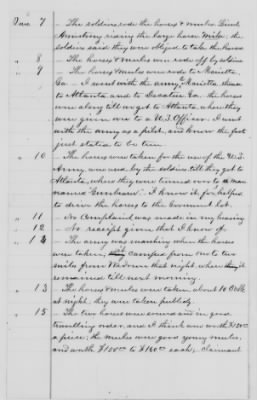 " 7 – The soldiers rode the horses & mules, Lieut
Armstrong riding the large horse Mike; the
soldiers said they were obliged to take the horses
" 8 – The horses & mules were rode off by soldiers
" 9 – The horses & mules were rode to Marietta
Ga – I went with the army to Marietta, thence
to Atlanta, and to Decatur Ga, & the horses
were along till we got to Atlanta, when they
were given over to a U.S. Officer. I went
with the army as a pilot, and know the fact
just stated to be true
" 10 – The horses were taken for the use of the U.S.
Army, and used by the soldiers till they got to
Atlanta, where they were turned over to a man
named I know it for I helped
to drive the horses to the Government lot.
" 11 – No Complaint was made in my hearing
" 12 – No receipt given that I know of.
" 13 – The army was marching when the horses
were taken; it camped from one to two
miles from that night, where they it
remained till next morning.
" 13 – The horses & mules were taken about 10 O'clk
at night; they were taken publicly.
" 15 – The two horses were sound and in good
travelling order, and I think are worth $150.00
a piece; the mules were good young mules,
and worth $150.00 to $160.00 each; claimant